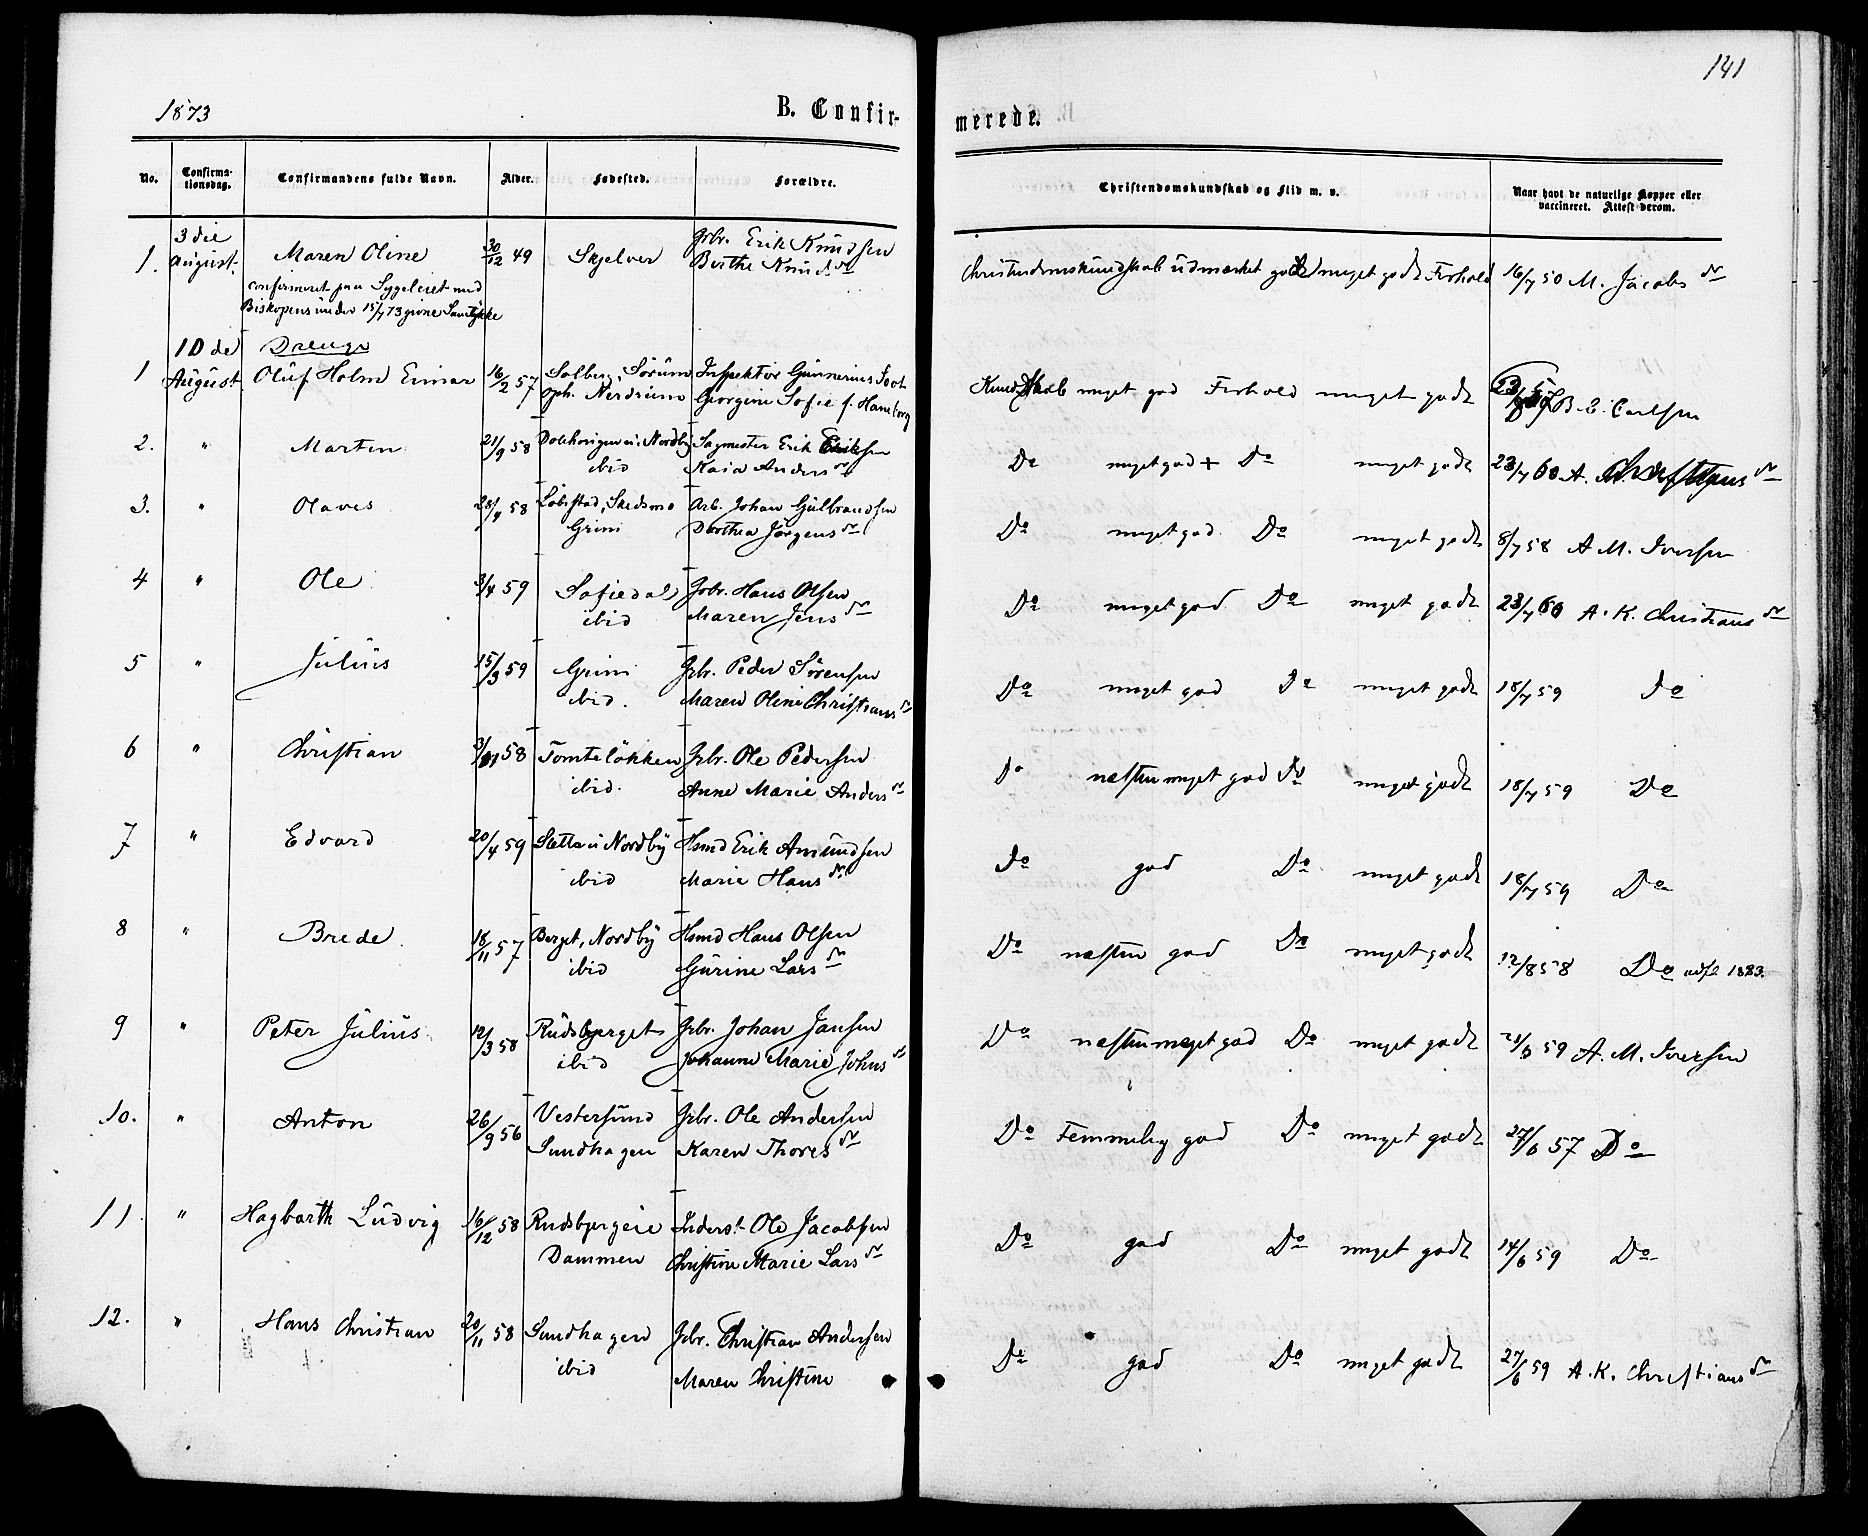 1873 B. Confir- merede. 141
No. Confirma-tionsdag. Confirmandens fulde Navn. Alder. Fødested. Forældre. Christendomskundskab og Flid m. v. Naar havt de naturlige Kopper eller vaccineret. Attest derom.
3die
1. August. Maren Oline 30/12 49 Skjelver Gbr. Erik Knudsen
Berthe Knudsdr
Christendomskundskab udmærket god meget godt Forhold 16/7 50 M. Jacobsdr
confirmeret paa Sygeleiet med
Biskopens under 15/7 73 givne Samtykke
10de Drenge
1 August Oluf Holm Einar 16/2 57 Solberg, Sørum Inspektør Gunnerius
oph. Nerdrum Georgine Sofie f. Haneborg
Kundskab meget god Forhold meget godt B. E. Carlsen
2. " Marten 21/9 58 i Nordby Sagmester Erik Eriksen
ibid Kaia Andersdr
Do meget god + Do meget godt 23/7 60 A.
3. " Olaves 28/4 58 Løbstad, Skedsmo Arb. Johan Gulbrandsen
Grini Dorthea Jørgensdr
Do meget god Do meget godt 8/7 58 A M. Iversen
4 " Ole 3/4 59 Sofiedal Gbr. Hans Olsen
ibid Maren Jensdr
Do meget god Do meget godt 23/7 60 A. K. Christiansdr
5 " Julius 15/3 59 Grini Gbr. Peder Sørensen
ibid. Maren Oline Christiansdr
Do meget god Do meget godt 18/7 59 Do
6 " Christian 58 Tomteløkken Gbr. Ole Pedersen
ibid. Anne Marie Andersdr
Do næsten meget god Do meget godt 18/7 59 Do
7 " Edvard 20/4 59 Sletta i Nordby Hsmd Erik Amundsen
ibid Marie Hansdr
Do god Do meget godt 18/7 59 Do
8 " Brede 18/11 57 Berget, Nordby Hsmd Hans Olsen
ibid Gurine Larsdr
Do næsten god Do meget godt 12/8 58 Do udst. 1883.
9 " Peter Julius 12/3 58 Rudsberget Gbr. Johan Jansen
ibid Johanne Marie Johnsdr
Do næsten meget god Do meget godt 59 A. M. Iversen
10. " Anton 26/9 56 Vestersund Gbr. Ole Andersen
Sundhagen Karen Thoresdr
Do Temmelig god Do meget godt 27/6 57 Do
11. " Hagbarth Ludvig 16/12 58 Rudsbjergeie Inderst Ole Jacobsen
Dammen Christine Marie Larsdr
Do god Do meget godt 14/6 59 Do
12. " Hans Christian 20/11 58 Sundhagen Gbr. Christian Andersen
ibid Maren Christine
Do god Do meget godt 27/6 59 A. K. Christiansdr